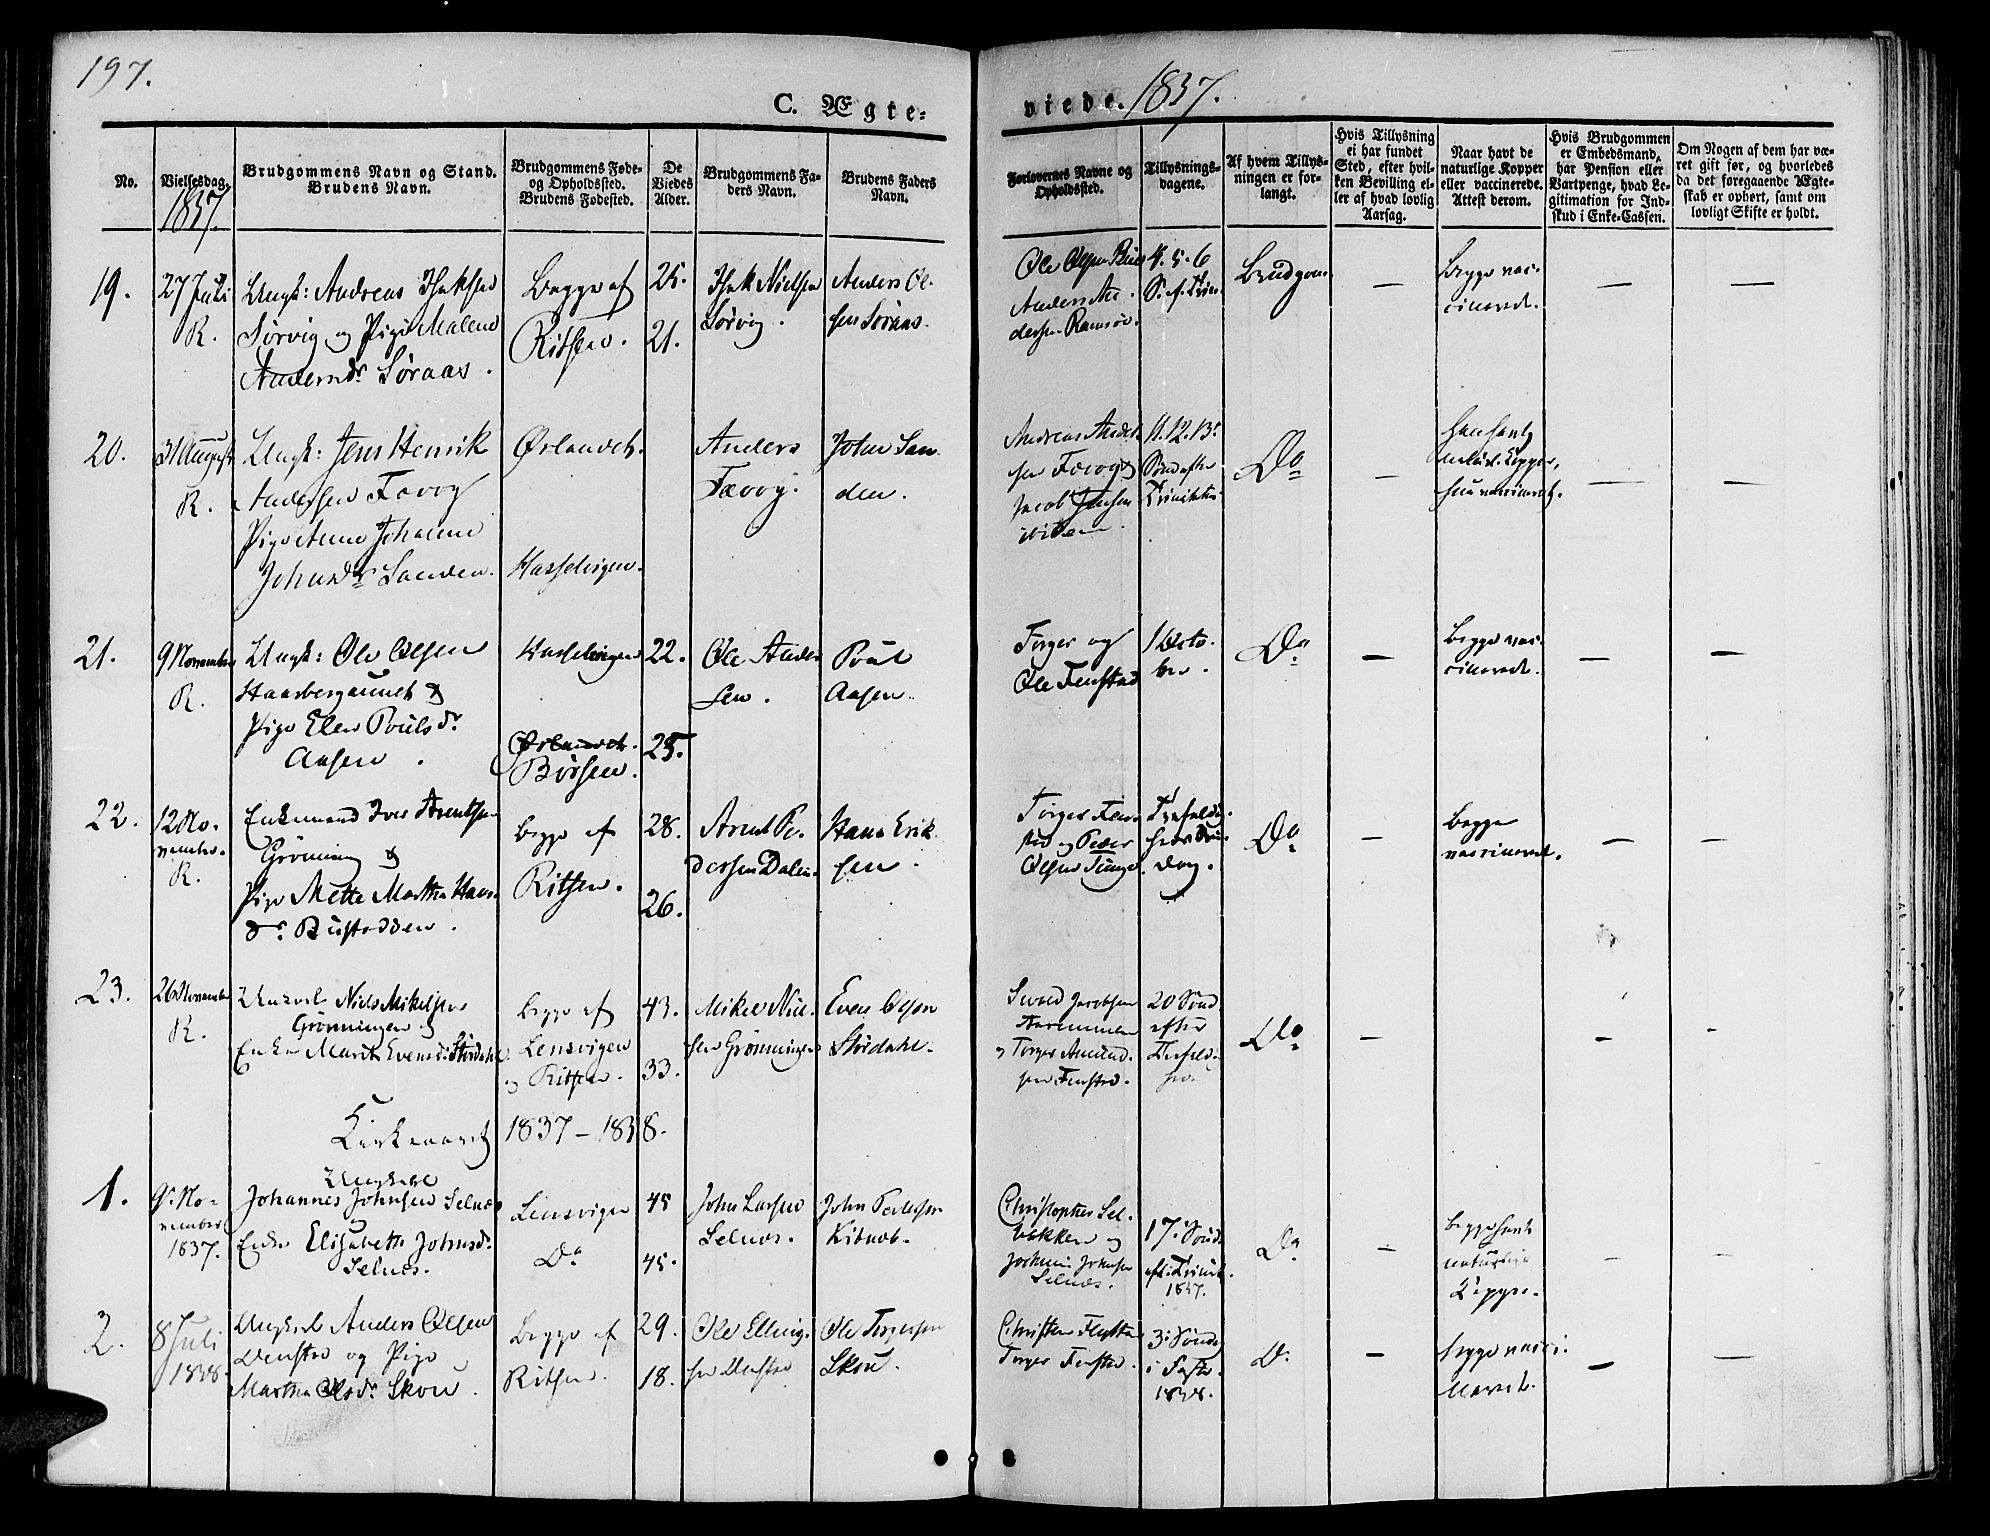 197.
C. Ægte-
viede. 1837.
No.
Vielsesdag.
1837.
Brudgommens Navn og Stand.
Brudens Navn.
Brudgommens Føde-
og Opholdssted.
Brudens Fødested.
De
Viedes
Alder.
Brudgommens Fa-
ders Navn.
Brudens Faders
Navn.
Forlovernes Navne og
Opholdssted.
Tillysnings-
dagene.
Af hvem Tillys-
ningen er for-
langt.
Hvis Tillysning
ei har fundet
Sted, efter hvil-
ken Bevilling el-
ler af hvad lovlig
Aarsag.
Naar havt de
naturlige Kopper
eller vaccinerede.
Attest derom.
Hvis Brudgommen
er Embedsmand,
har Pension eller
Vartpenge, hvad Le-
gitimation for Ind-
skud i Enke-Cassen.
Om Nogen af dem har væ-
ret gift før, og hvorledes
da det foregaaende Ægte-
skab er ophørt, samt om
lovligt Skifte er holdt.
19.
27 Juli
R.
Ungk: Andreas Isaksen
Sørvig og Pige Malene
Andersdr Søraas.
Begge af
Ritsen.
25.
21.
Isak Nielsen
Sørvig.
Anders Ol-
sen Søraas.
Ole Olsen
Anders An-
dersen Ramsøe.
4. 5. 6
S. e. Trin.
Brudgom.
—
begge vac-
cineret.
—
—
20.
31 August
R.
Ungk: Jens Henrik
Andersen Fævog
Pige Anne Johanna
Johnsdr Sanden.
Ørlandet.
Hasselvigen.
Anders
Fævog.
John San-
den.
Andreas Ander-
sen Fævog &
Jacob Jensen
ibidem.
11. 12. 13.
Sønd efter
Trinitatis.
Do
—
han havt
naturl. Kopper,
hun vaccineret.
—
—
21.
9 November
R.
Ungk: Ole Olsen
Haarberg &
Pige Elen Pouls dr
Aasen.
Hasselvigen
Ørlandet.
Børsen.
22.
25.
Ole Ander-
sen.
Poul
Aasen.
Torger og
Ole Fenstad
1 Octo-
ber.
Do
—
begge vac-
cineret.
—
—
22.
12 No-
vember.
R.
Enkemand Iver Arentsen
Grønning &
Pige Mette Martha Hans-
dr. Bustadden.
begge af
Ritsen.
28.
26.
Arent Pe-
dersen Dalen.
Hans Erik-
sen.
Torger Fen-
stad og Peder
Olsen Tung.
Trefoldig-
heds Søn-
dag.
Do
—
Begge
vaccineret.
—
—
23.
26 November
R.
Ungkarl Niels Mikelsen
Grønningen og
Enke Marit Evensdr Størdahl
begge af
Lensvigen
og Ritsen.
43.
33.
Mikel Niel-
sen Grønningen
Even Olsen
Størdahl.
Sivald Jacobsen
og Torger Amund-
sen Fenstad.
20 Sønd.
efter
Trefoldig-
hed.
Do
—
—
—
Kirkeaaret 1837 – 1838.
1.
9. No-
vember
1837.
Ungkarl
Johannes Johnsen Selnæs
Enke Elisabeth Johnsdr.
Selnæs.
Lensvigen
Do
45
45.
John Larsen
Selnæs.
John Pedersen
Christopher Sel-
bekken og
Johnsen
Selnæs.
17. Sønd.
eft. Trinit.
1837.
Do
—
begge havt
naturlige
Kopper.
—
—
2.
8 Juli
1838.
Ungkarl Anders Olsen
Denstad og Pige
Martha Olsdr. Skou.
Begge af
Ritsen.
29.
18.
Ole Elling-
sen Denstad
Ole Torgersen
Skou.
Christen Flytta
Torger Fenstad.
3. Søndag
i Faste
1838.
Do
—
begge vacci-
neret.
—
—